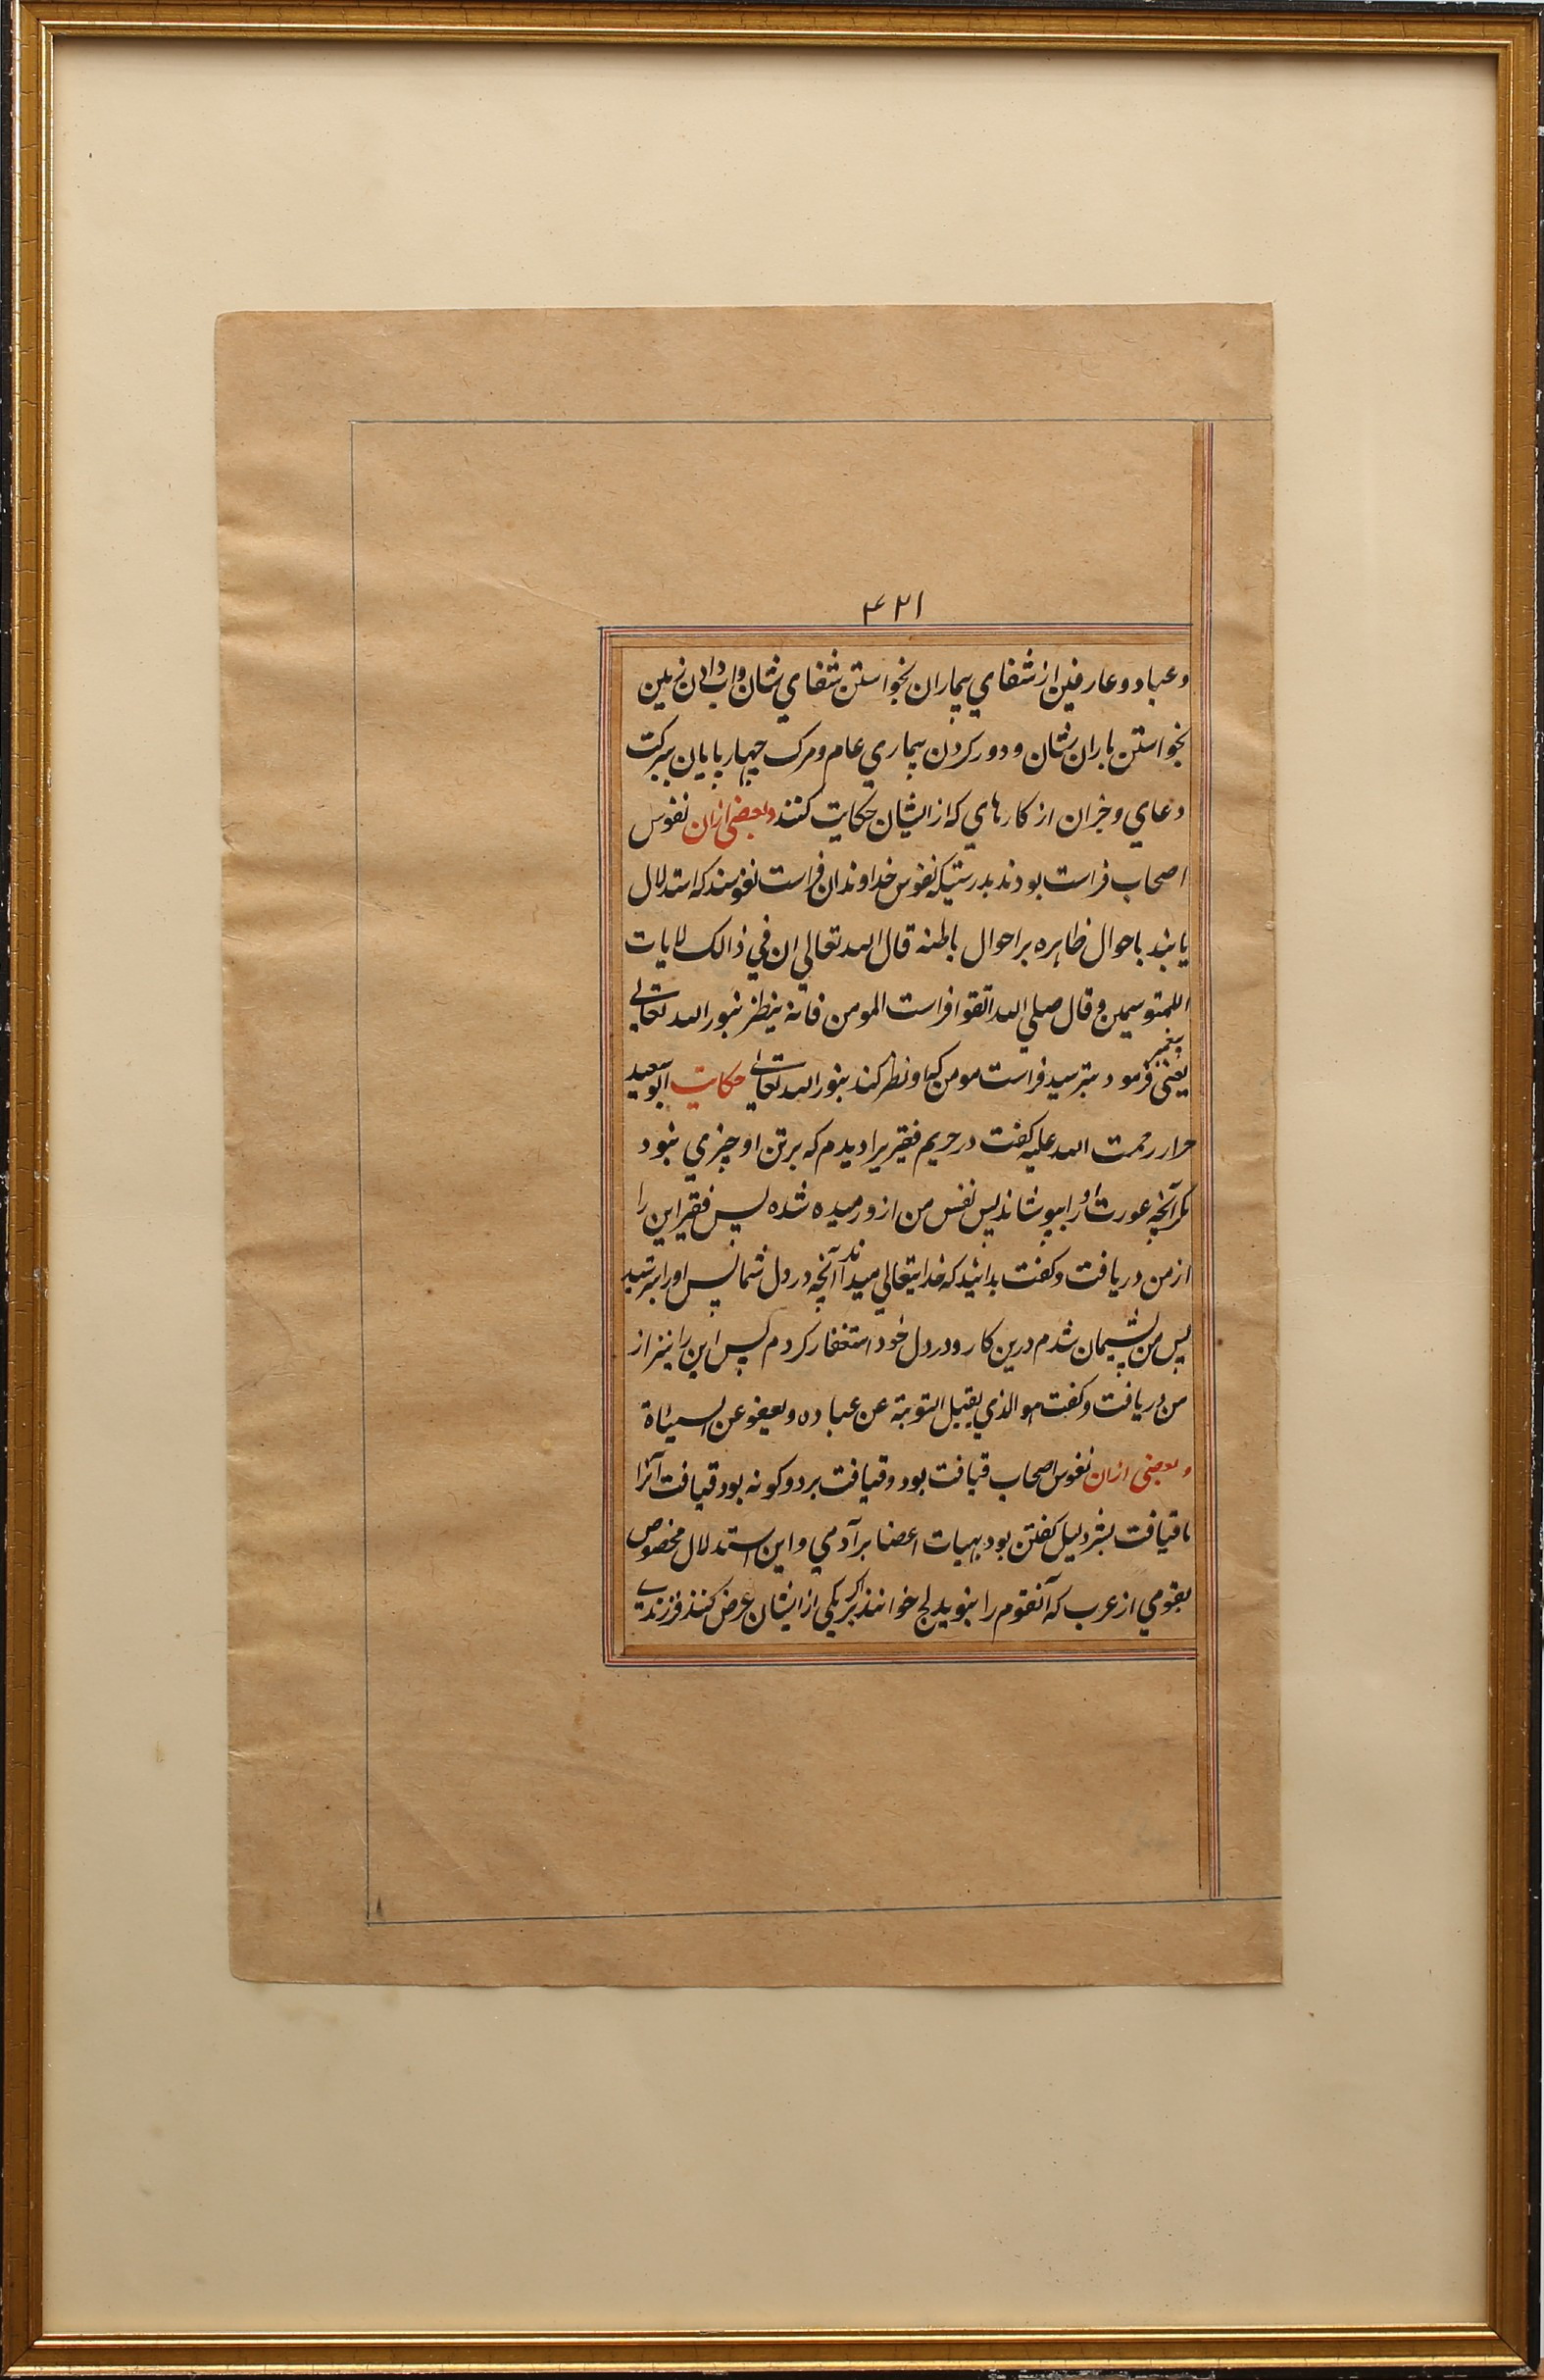 ۴۲۱
وعباد وعارفین از شفای بیماران بخواستن شفای شان واب دادن زمین
بخواستن باران شان و دور کردن بیماری عام ومرک چهار پایان ببرکت
دعای وجزان از کارهای که از ایشان حکایت کنند وبعضی ازان نفوس
اصحاب فراست بودند بدرستیکه نفوس خداوندان فراست نفوسند که استدلال
یابند باحوال ظاهره بر احوال باطنه قال الله تعالی ان فی ذالک لایات
اللمتوسیمین وقال صلی الله اتقوا فراست المومن فانه ینظر بنور الله تعالی
یعنی پیغمبر فرمود بترسید فراست مومن که او نظر کند بنور الله تعالی حکایت ابوسعید
حرار رحمت الله علیه کفت در حریم فقیریرا دیدم که بر تن او چیزی نبود
مکر آنچه عورت او را بپوشاند پس نفس من ازو رمیده شده پس فقیر این را
از من دریافت وکفت بدانید که خدایتعالی میداند آنچه در دل شما پس اورا بترسید
پس من پشیمان شدم درین کار ودر دل خود استغفار کردم پس این را نیز از
من دریافت وکفت هو الذی یقبل التوبة عن عباده ویعفو عن السیئاة
وبعضی ازان نفوس اصحاب قیافت بود وقیافت بر دو کونه بود قیافت آنرا
ما قیافت بشر دلیل کفتن بود بهیات اعضا بر آدمی و این استدلال مخصوص
بقومی از عرب که آنقوم را بنو یدلج خوانند اکر بر یکی از ایشان عرض کنند فرزندی